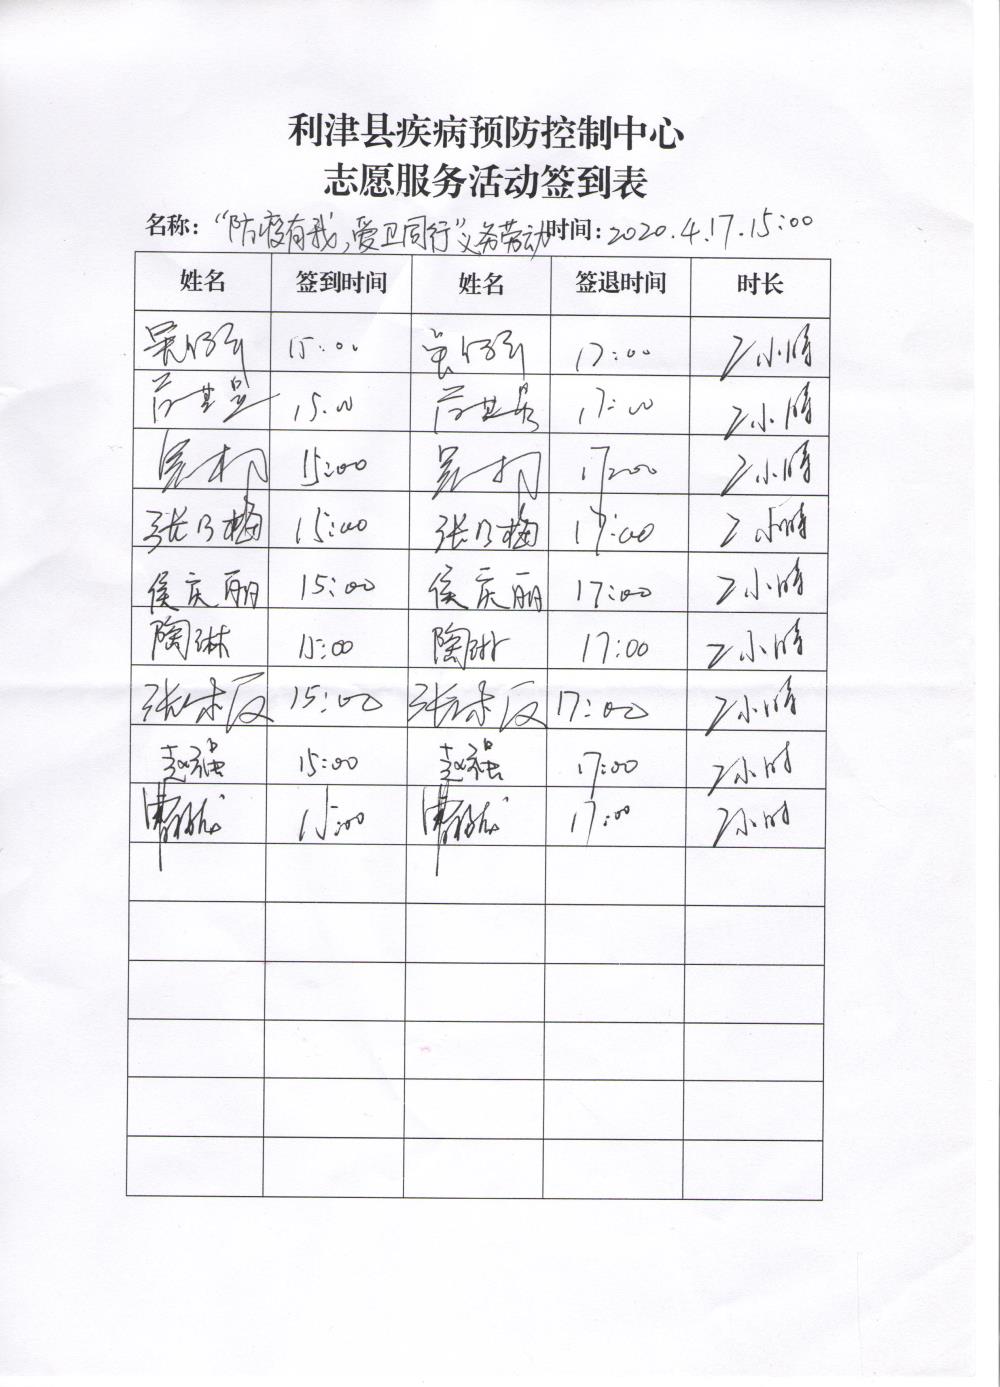 利津县疾病预防控制中心
志愿服务活动签到表
名称：“防疫有我，爱卫同行”义务劳动 时间：2020.4.17.15:00
姓名 签到时间 姓名 签退时间 时长
15:00 17:00 2小时
15:00 17:00 2小时
15:00 17:00 2小时
张乃梅 15:00 张乃梅 17:00 2小时
侯庆丽 15:00 侯庆丽 17:00 2小时
陶琳 15:00 陶琳 17:00 2小时
张 15:00 张 17:00 2小时
赵强 15:00 赵强 17:00 2小时
曹 15:00 曹 17:00 2小时